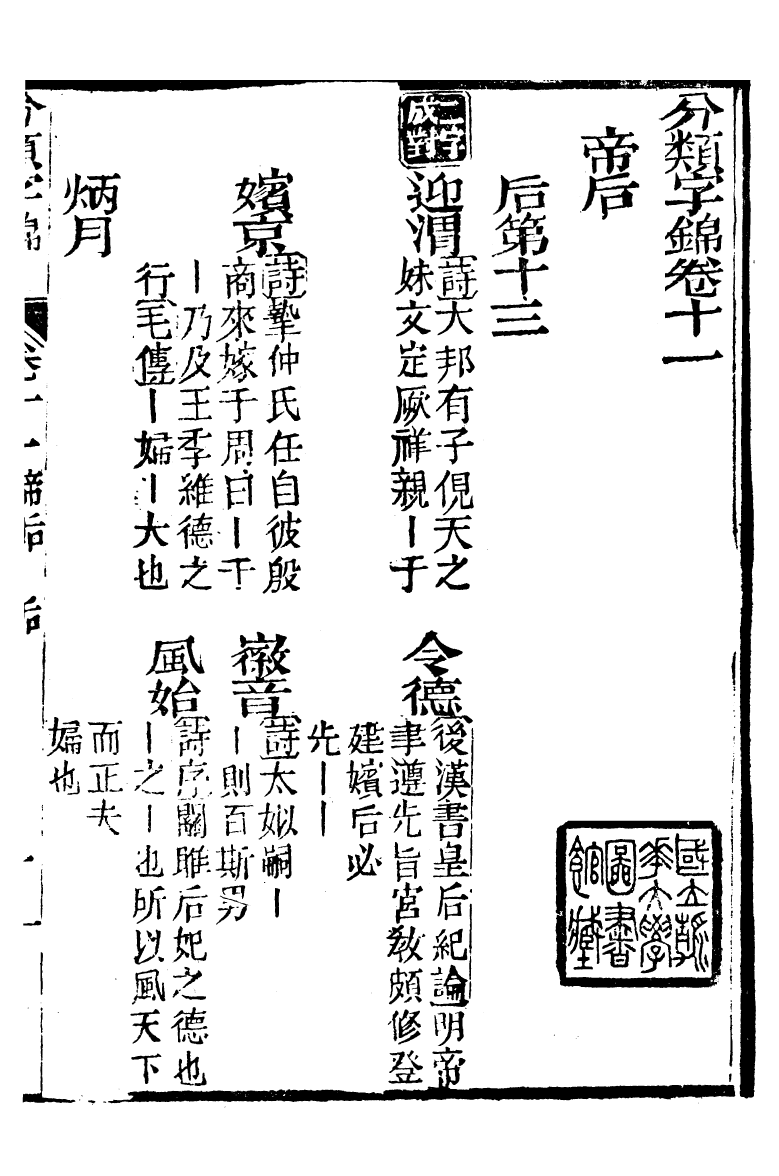 分類字錦卷十一
帝后
后第十三
二字成對
迎渭
詩大邦有子俔天之
妹文定厥祥親丨于
令德
後漢書皇后紀論明帝
聿遵先旨宮敎頗修登
建嬪后必
先丨丨
嬪京
詩摯仲氏任自彼殷
商來嫁于周曰丨于
丨乃及王季維德之
行毛傳丨婦丨大也
徽音
詩太姒嗣丨
丨則百斯男
風始
詩序關雎后妃之德也
丨之丨也所以風天下
而正夫
婦也
炳月
分類字錦
卷十一 帝后 后
一
國立清華大學圖書館藏